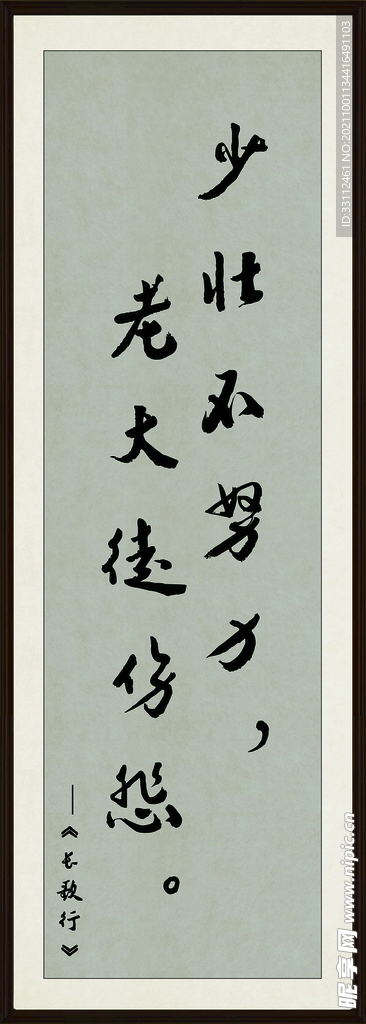 少壮不努力，
老大徒伤怨。
——《长歌行》
ID:33112461 NO:20211001134416491103
昵享网 www.nipic.cn